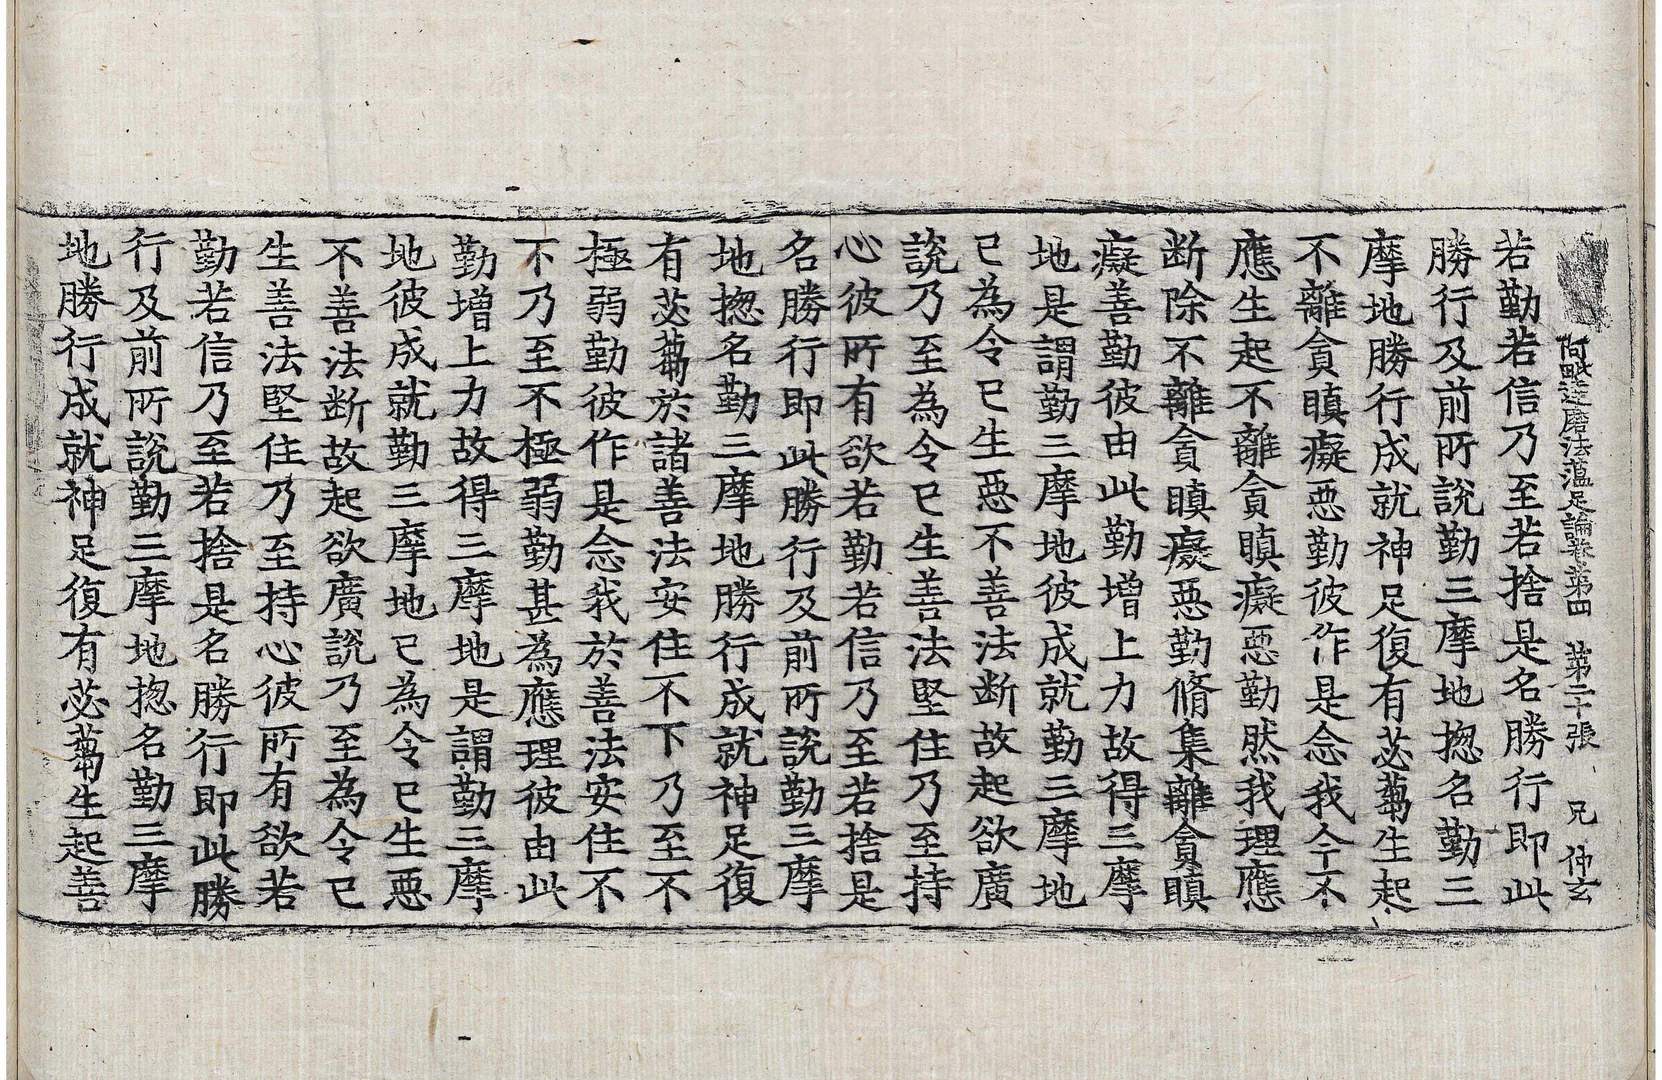 阿毗達磨法蘊足論卷第四 第二十張 兄 仲玄
若勤若信乃至若捨是名勝行即此
勝行及前所說勤三摩地揔名勤三
摩地勝行成就神足復有苾蒭生起
不離貪瞋癡惡勤彼作是念我今不
應生起不離貪瞋癡惡勤然我理應
断除不離貪瞋癡惡勤脩集離貪瞋
癡善勤彼由此勤增上力故得三摩
地是謂勤三摩地彼成就勤三摩地
已為令已生惡不善法断故起欲廣
說乃至為令已生善法堅住乃至持
心彼所有欲若勤若信乃至若捨是
名勝行即此勝行及前所說勤三摩
地揔名勤三摩地勝行成就神足復
有苾蒭於諸善法安住不下乃至不
極弱勤彼作是念我於善法安住不
不乃至不極弱勤甚為應理彼由此
勤增上力故得三摩地是謂勤三摩
地彼成就勤三摩地已為令已生惡
不善法断故起欲廣說乃至為令已
生善法堅住乃至持心彼所有欲若
勤若信乃至若捨是名勝行即此勝
行及前所說勤三摩地揔名勤三摩
地勝行成就神足復有苾蒭生起善